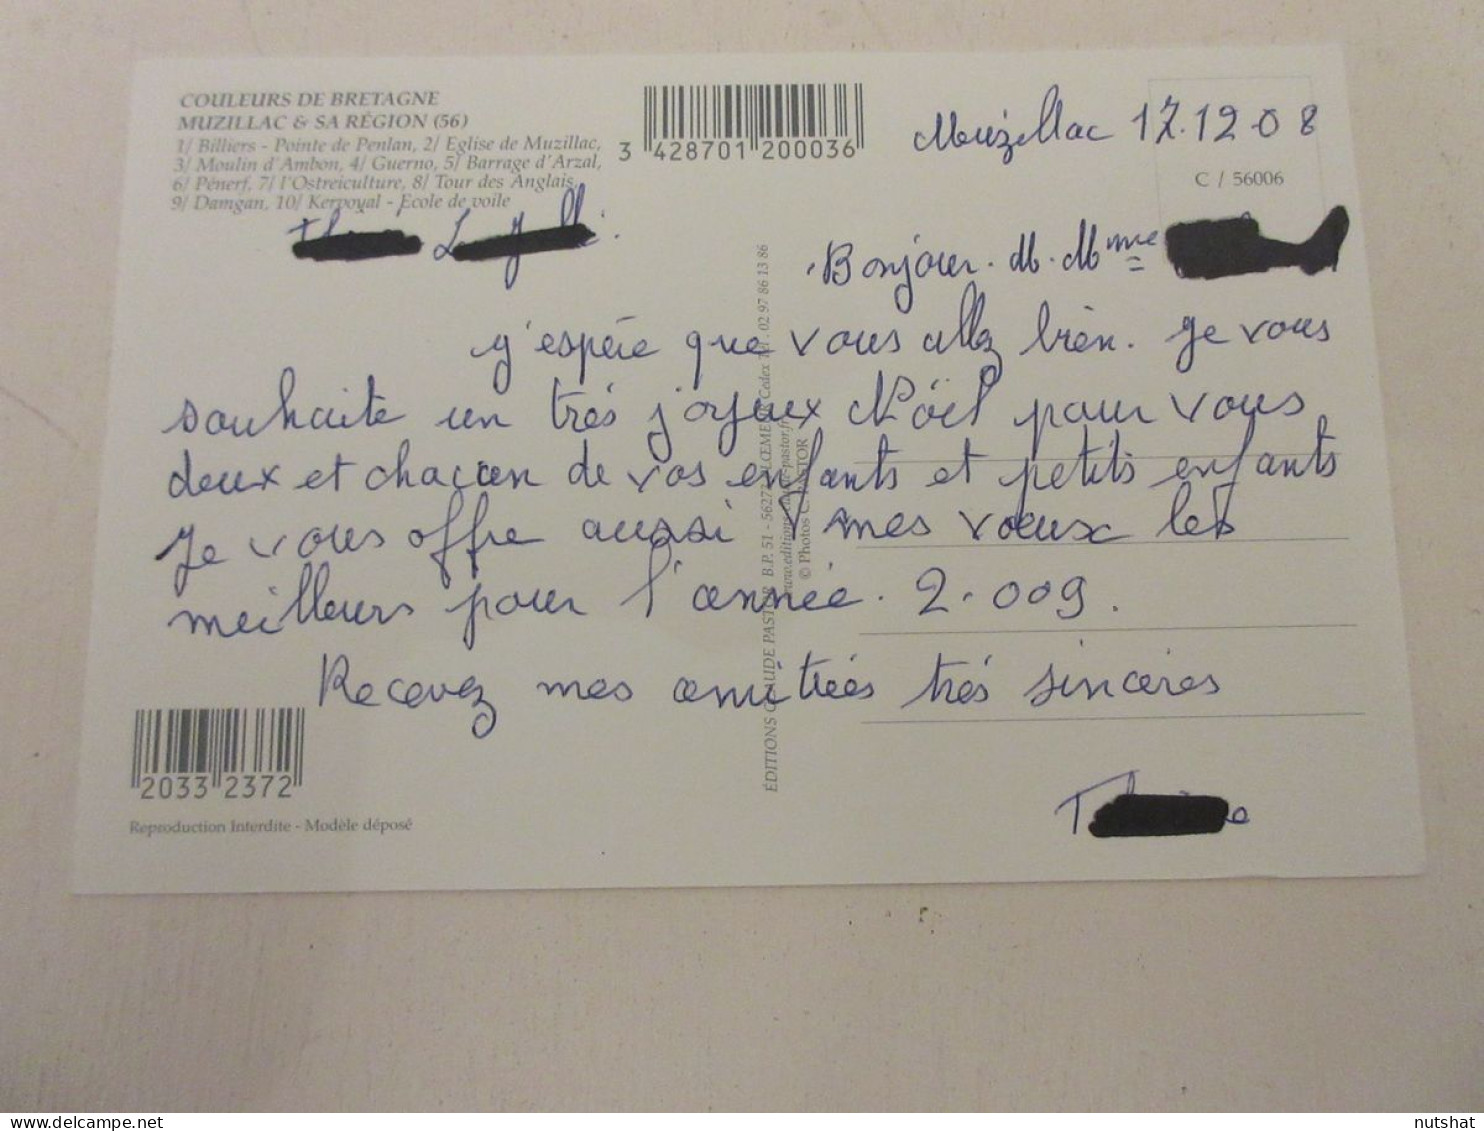 COULEURS DE BRETAGNE
MUZILLAC & SA RÉGION (56)
1/ Billiers - Pointe de Penlan, 2/ Eglise de Muzillac,
3/ Moulin d'Ambon, 4/ Guerno, 5/ Barrage d'Arzal,
6/ Pénerf, 7/ l'Ostreiculture, 8/ Tour des Anglais,
9/ Damgan, 10/ Kervoyal - Ecole de voile
3 428701 200036
Muzillac 17.12.08
C / 56006
Bonjour. M. Mme
J'espére que vous allez bien. Je vous
souhaite un trés joyeux Nöel pour vous
deux et chacun de vos enfants et petits enfants
Je vous offre aussi mes voeux les
meilleurs pour l'année. 2.009.
Recevez mes amitiées trés sincéres
ÉDITIONS CLAUDE PASTOR B.P. 51 - 56272 PLŒMEUR Cedex Tél. 02 97 86 13 86
© Photos C. PASTOR
2033 2372
Reproduction Interdite - Modèle déposé
delcampe.net
nutshat